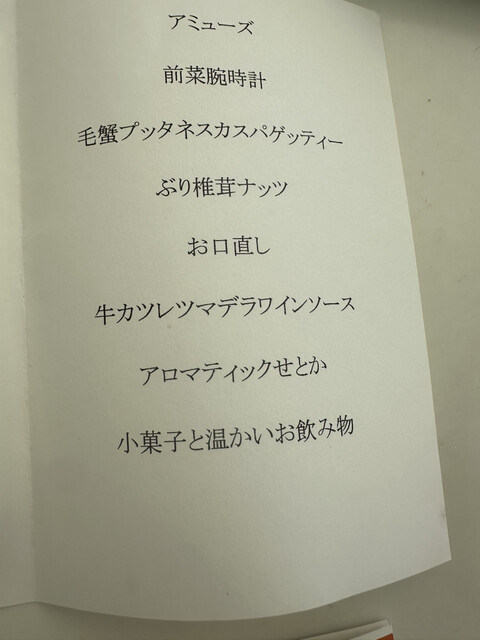 アミューズ
前菜腕時計
毛蟹プッタネスカスパゲッティー
ぶり椎茸ナッツ
お口直し
牛カツレツマデラワインソース
アロマティックせとか
小菓子と温かいお飲み物